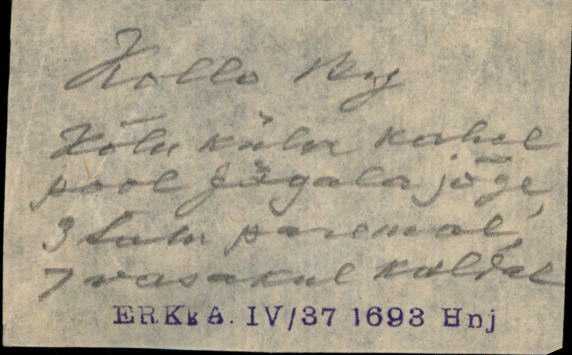 Kolla
Kõlu küla kahel
pool Jägala jõge,
3 talu paremal,
7 vasakul kaldal
ERKKA. IV/37 1693 Hnj